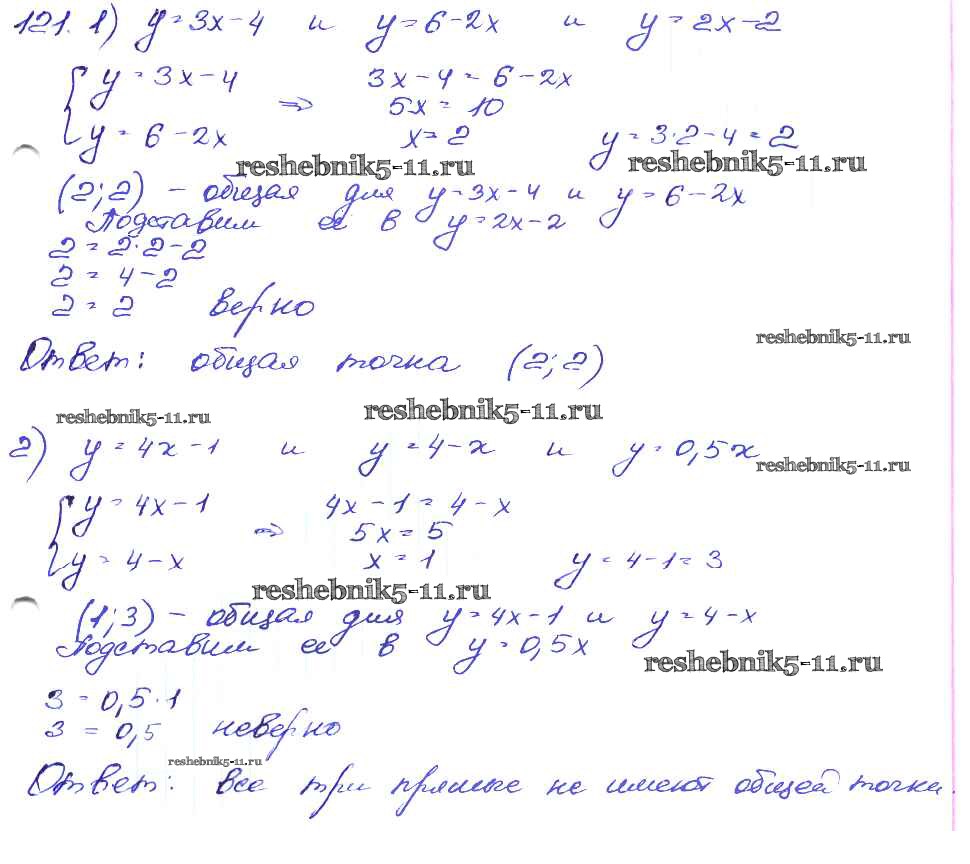 121. 1) y=3x-4 и y=6-2x и y=2x-2
{ y=3x-4 ⇒ 3x-4=6-2x
5x=10
y=6-2x x=2 y=3·2-4=2
reshebnik5-11.ru reshebnik5-11.ru
(2;2) – общая для y=3x-4 и y=6-2x
Подставим ее в y=2x-2
2=2·2-2
2=4-2
2=2 верно
reshebnik5-11.ru
Ответ: общая точка (2;2)
reshebnik5-11.ru reshebnik5-11.ru
2) y=4x-1 и y=4-x и y=0,5x
reshebnik5-11.ru
{ y=4x-1 ⇒ 4x-1=4-x
5x=5
y=4-x x=1 y=4-1=3
reshebnik5-11.ru
(1;3) – общая для y=4x-1 и y=4-x
Подставим ее в y=0,5x
reshebnik5-11.ru
3=0,5·1
3=0,5 неверно
reshebnik5-11.ru
Ответ: все три прямые не имеют общей точки.